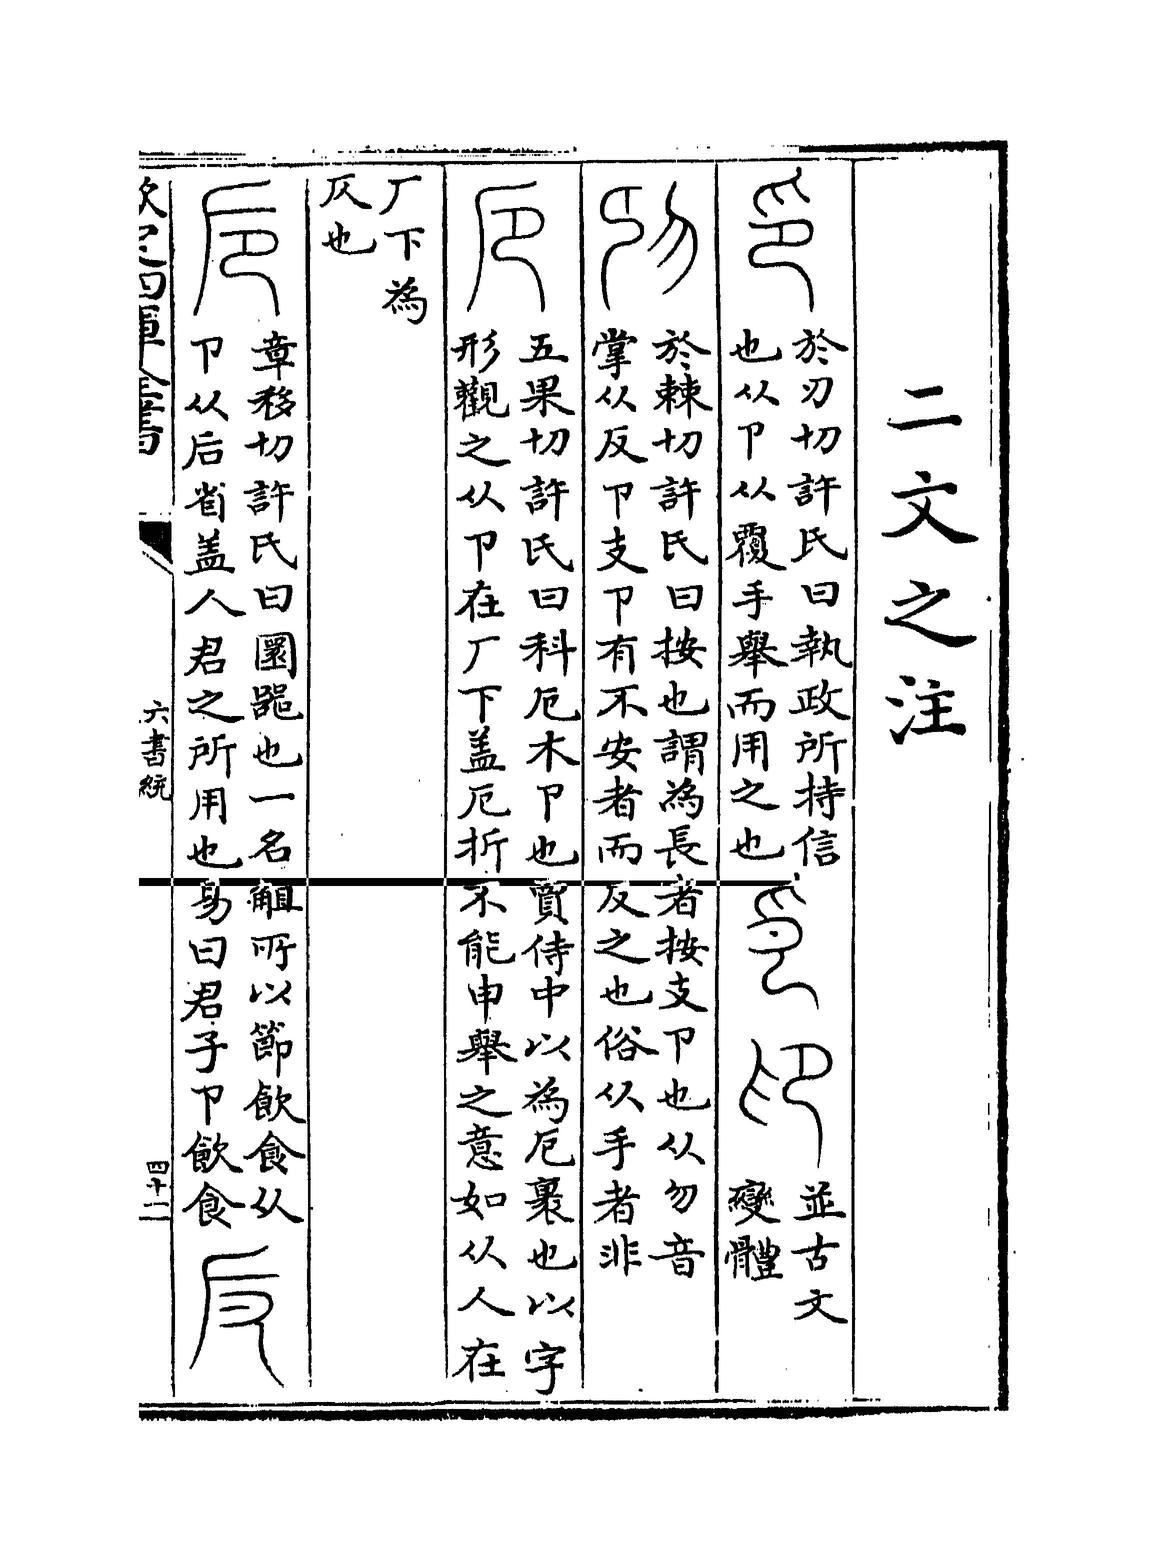 二文之注
於刃切許氏曰執政所持信
也从卪从覆手舉而用之也
並古文
變體
於棘切許氏曰按也謂為長者按支卪也从勿音
掌从反卪支卪有不安者而反之也俗从手者非
五果切許氏曰科厄木卪也賈侍中以為厄裹也以字
形觀之从卪在厂下盖厄折不能申舉之意如从人在
厂下為
仄也
章移切許氏曰圜器也一名觛所以節飲食从
卪从后省盖人君之所用也易曰君子卪飲食
欽定四庫全書
六書統
四十二